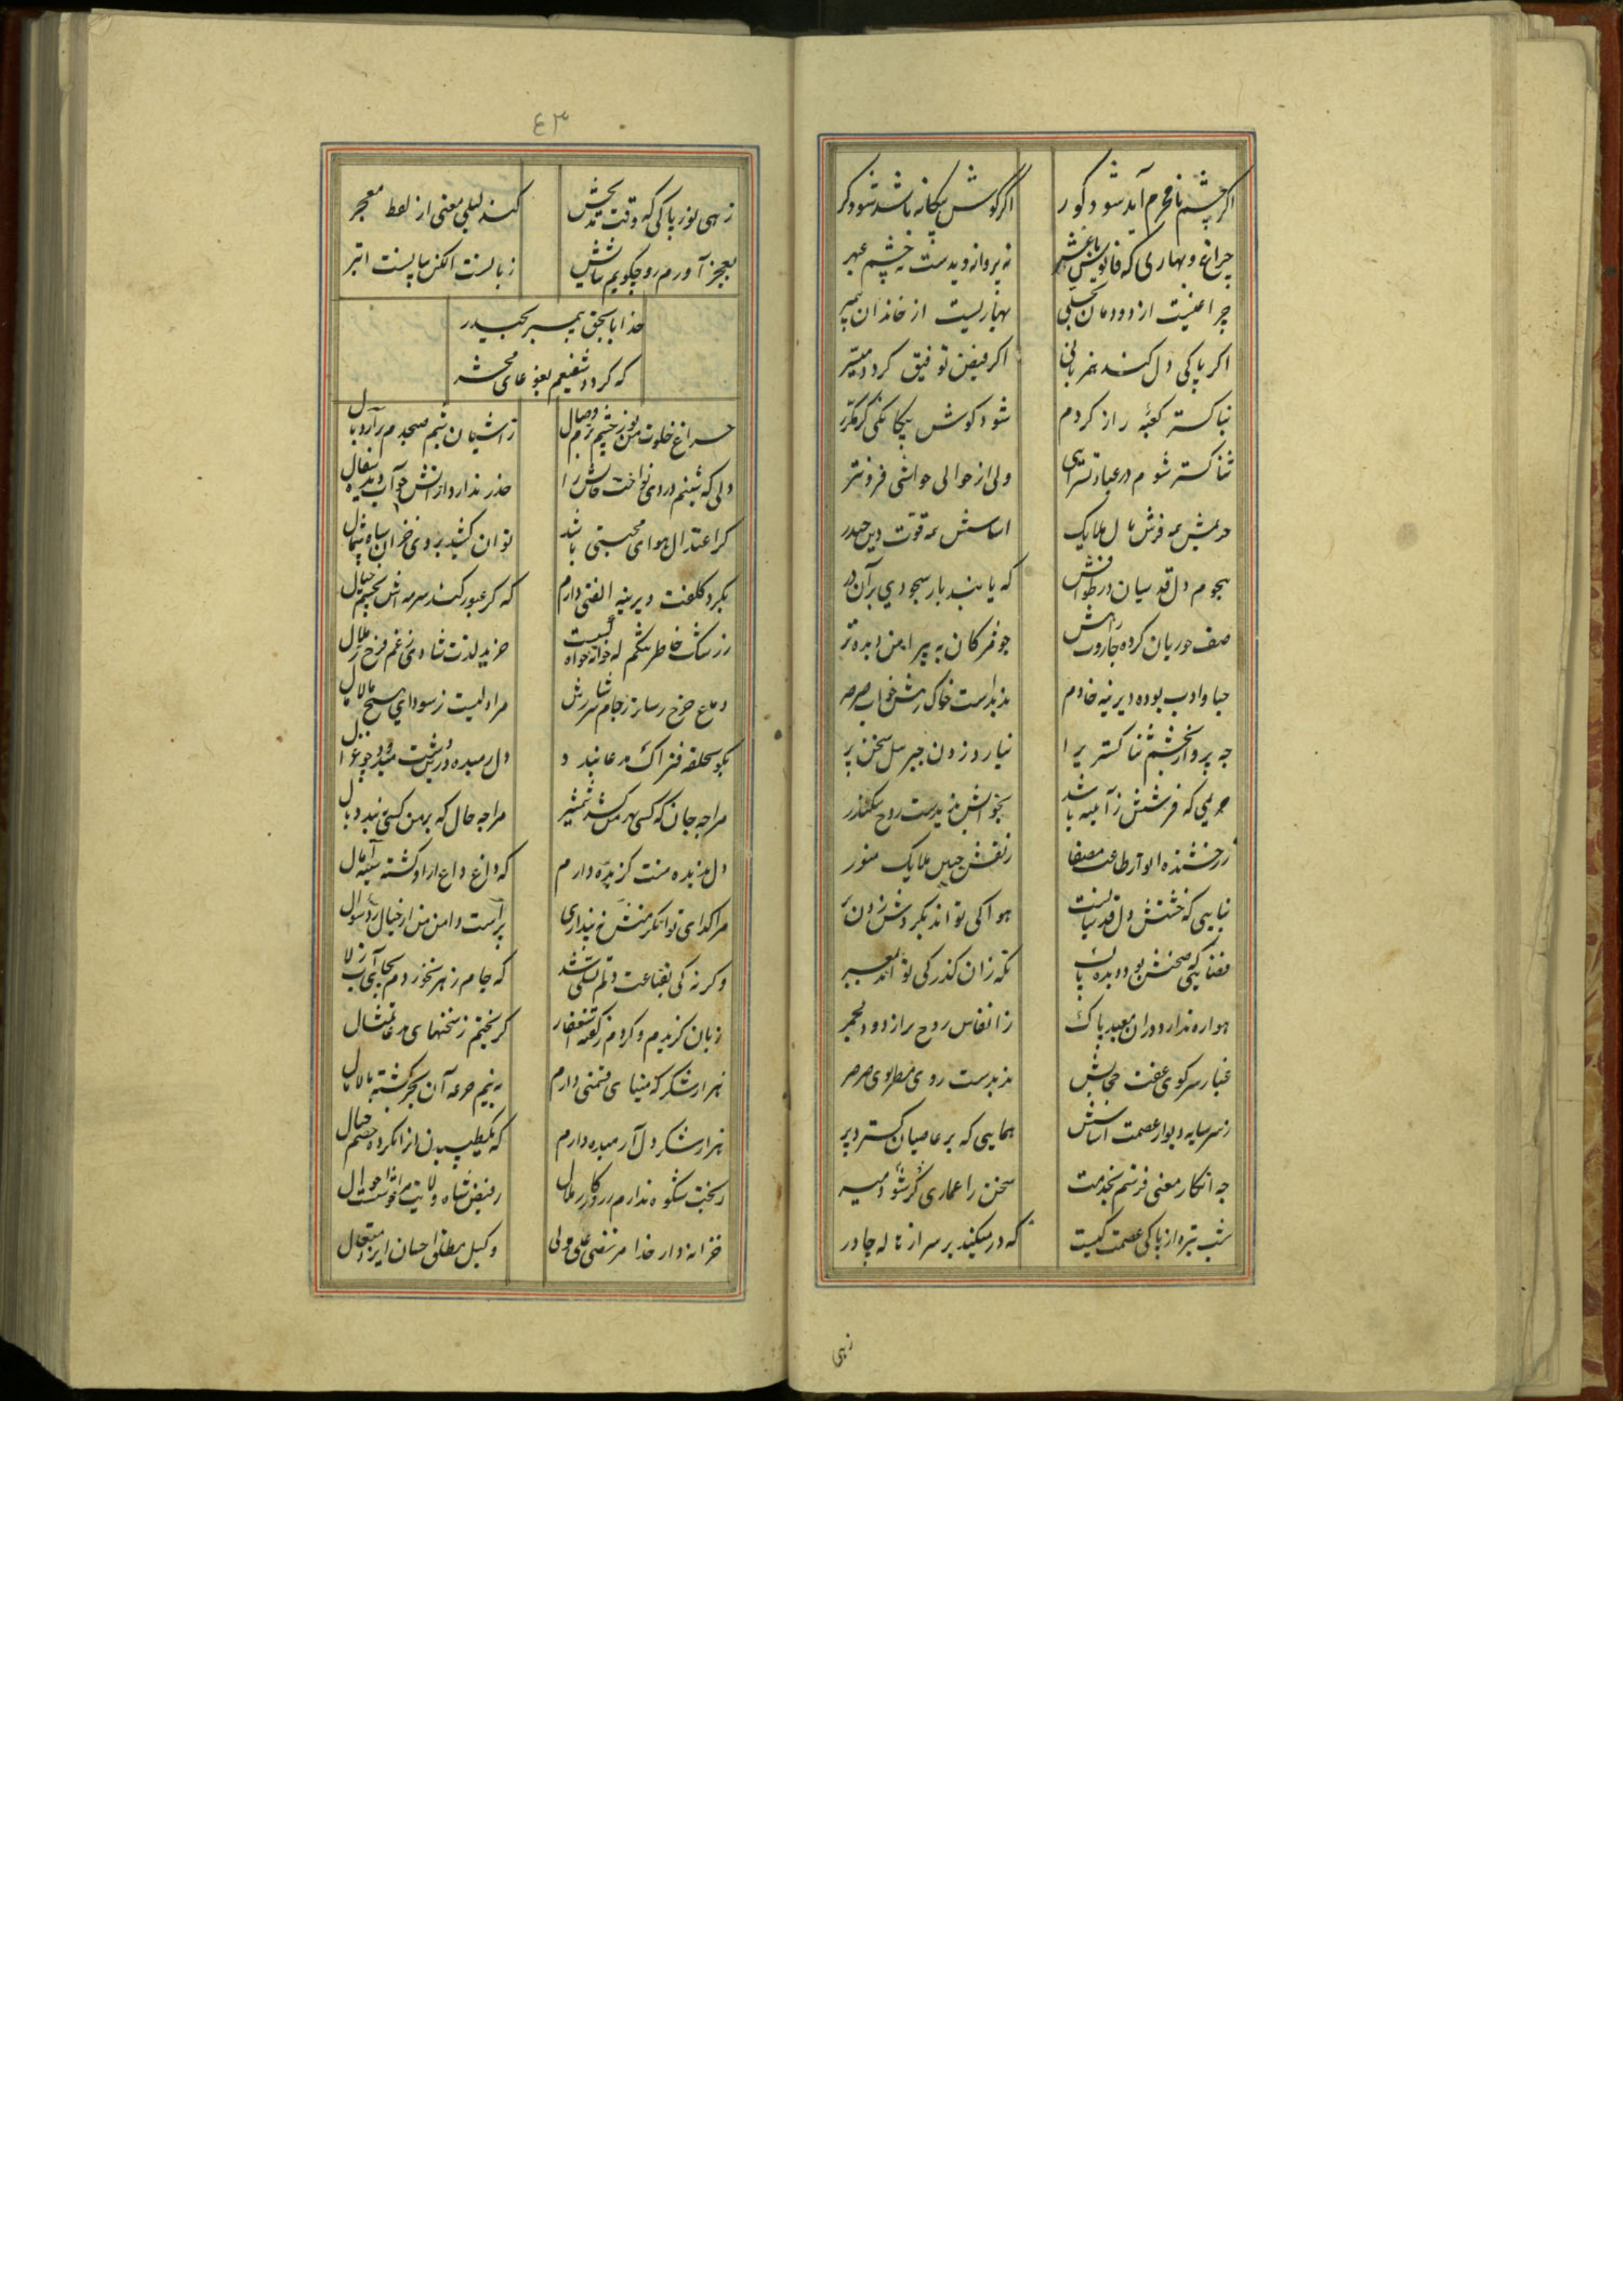 اگر چشم نامحرم آید شود کور اگر گوش بیگانه باشد شود کر
چراغ و بهاری که فانوس باغش نه پروانه دیدست نه چشم عبهر
چراغیست از دودمان تجلی بهاریست از خاندان پیمبر
اگر پاکی دل کند همزبانی اگر فیض توفیق گردد میسر
ثناگستر کعبه راز گردم شود گوش
ثناگستر شوم در عبادتسرایی ولی از حوالی حواشی فروتر
حریمش به فرش بال ملایک اساسش به قوت دین حیدر
هجوم دل قدسیان در طوافش که یابند بار سجودی بر آن در
صف حوریان کرده جاروب راهش چو مژگان به پیرامن دیده تر
حیا و ادب بوده دیرینه خادم ندیداست خاک رهش خواب صرصر
چه پرواز بخشم ثناگستری را نیارد زدن جبرئیل سخن پر
حریمی که فرشش ز آیینه باشد بخوابش ندیدست روح سکندر
درخشنده انوار طاعت مصفا ز نقش جبین ملایک منور
بنایی که خشتش دل قدسیانست هوا کی تواند بگردش زدن پر
فضایی که صحنش بود دیده پاک نگه زان گذر کی تواند معبر
هوا ره ندارد در آن معبد پاک ز انفاس روح پر از دود مجمر
غبار سر کوی عفت حجابش ندیدست روی صرصر
ز سر سایه دیوار عصمت اساسش همایی که بر عاصیان گسترد پر
چه افکار معنی فرستم بخدمت سخن را عماری گر شود میسر
شب تیره از پاکی عصمت کیست که در میکند بر سر از ناله چادر
زهی
٤٣
زهی نور پاکی که وقت مدیحش کند لیلی معنی از لفظ معجر
بعجز آورم رو چگویم ثنایش زبانست الکن بیانست ابتر
خدایا بحق پیمبر بحیدر
که گردد شفیعم بغوغای محشر
چراغ خلوت من نور چشم بزم وصال ز آشیان شبم صبحدم برآرد بال
دلی که شبنم دردی نواخت خاکش را حذر ندارد از آتش چو آب دیده سفال
گر اعتدال هوای محبتی باشد توان کشید بروی خزان سپاه شمال
بگرد کلفت دیرینه الفتی دارم که گر عبور کند سرمه‌اش بچشم خیال
ز رشک خاطر خرید لذت شادی ز غم فرح ز ملال
دماغ چرخ رسا تر ز جام سرشارش مرا دلیست ز سودای هیچ مالامال
بگو بحلقه فتراک مدعا نبدد دل رمیده
مرا چه جان که کسی بهر من کشد شمشیر مرا چه حال که بر من کسی نبدد بال
دل ندیده منت گزیده دارم که داغ داغ از او گشته سینه آمال
مرا گدای توانگر منش نپنداری پر است دامن من از خیال رد سوال
وگرنه کی بقناعت دلم تسلی شد که جام زهر نخوردم بجای آب زلال
زبان گزیدم و کردم ز گفته استغفار گریختم ز سخنهای مدعا تمثال
هزار شکر که مینای دشمنی دارم به نیم جرعه آن بحر گشته مالامال
هزار شکر دل آرمیده دارم که یک طپیدن از آن کرده خصم حال
ز بخت شکوه ندارم ز روزگار ملال ز فیض شاه ولایت
خزانه‌دار خدا مرتضی علی ولی وکیل مطلق احسان ایزد متعال